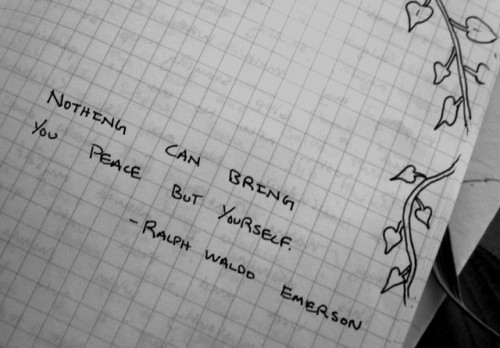 NOTHING CAN BRING
YOU PEACE BUT YOURSELF.
-RALPH WALDO EMERSON